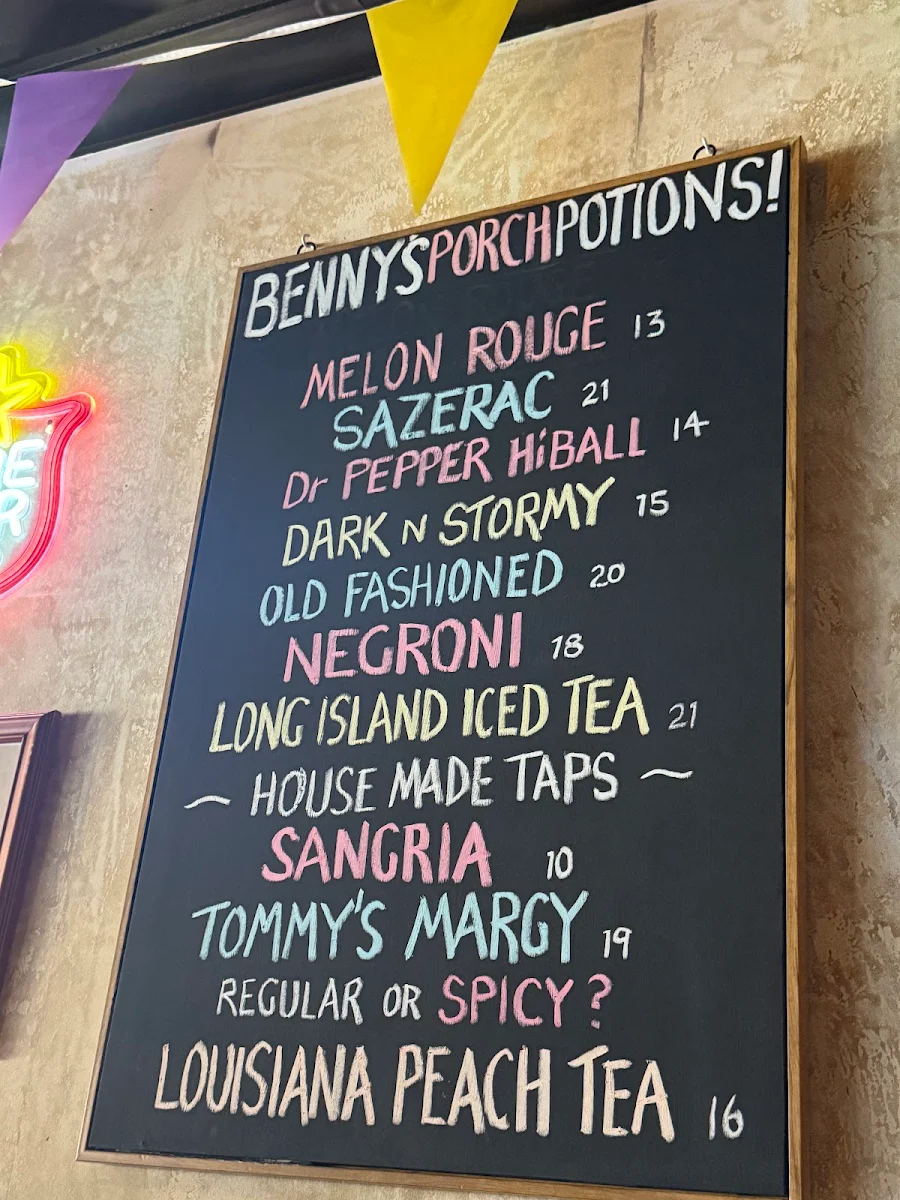 BENNY'S PORCH POTIONS!
MELON ROUGE 13
SAZERAC 21
Dr PEPPER HiBALL 14
DARK N STORMY 15
OLD FASHIONED 20
NEGRONI 18
LONG ISLAND ICED TEA 21
~ HOUSE MADE TAPS ~
SANGRIA 10
TOMMY'S MARGY 19
REGULAR OR SPICY?
LOUISIANA PEACH TEA 16